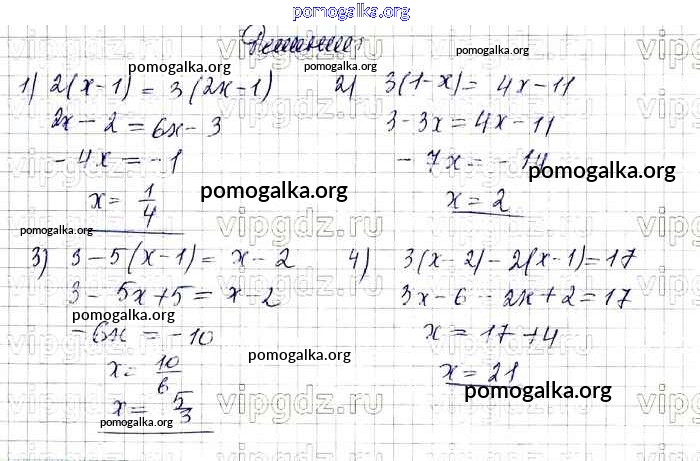 pomogalka.org
Решение:
1) 2(x-1) = 3(2x-1)
2x - 2 = 6x - 3
- 4x = - 1
x = 1/4
2) 3(1-x) = 4x - 11
3 - 3x = 4x - 11
- 7x = - 14
x = 2
3) 3 - 5(x-1) = x - 2
3 - 5x + 5 = x - 2
- 6x = - 10
x = 10/6
x = 5/3
4) 3(x-2) - 2(x-1) = 17
3x - 6 - 2x + 2 = 17
x = 17 + 4
x = 21
pomogalka.org
pomogalka.org
pomogalka.org
pomogalka.org
pomogalka.org
pomogalka.org
pomogalka.org
pomogalka.org
pomogalka.org
pomogalka.org
vipgdz.ru
vipgdz.ru
vipgdz.ru
vipgdz.ru